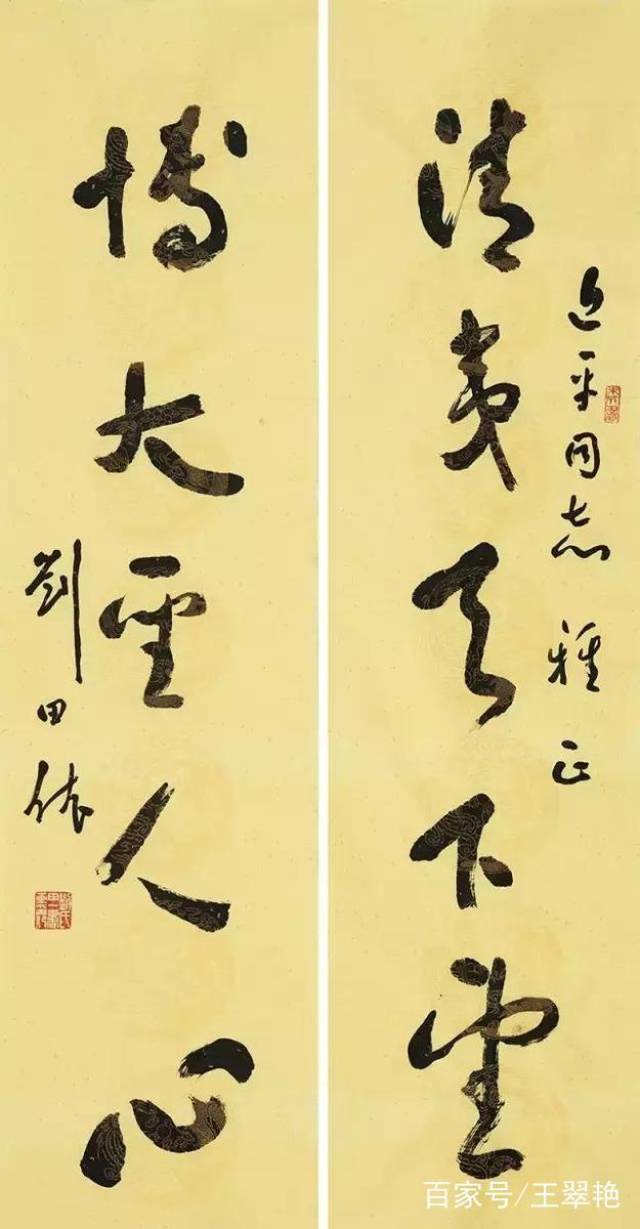 近平同志 雅正
清夷天下望
博大聖人心
劉田依
百家号/王翠艳